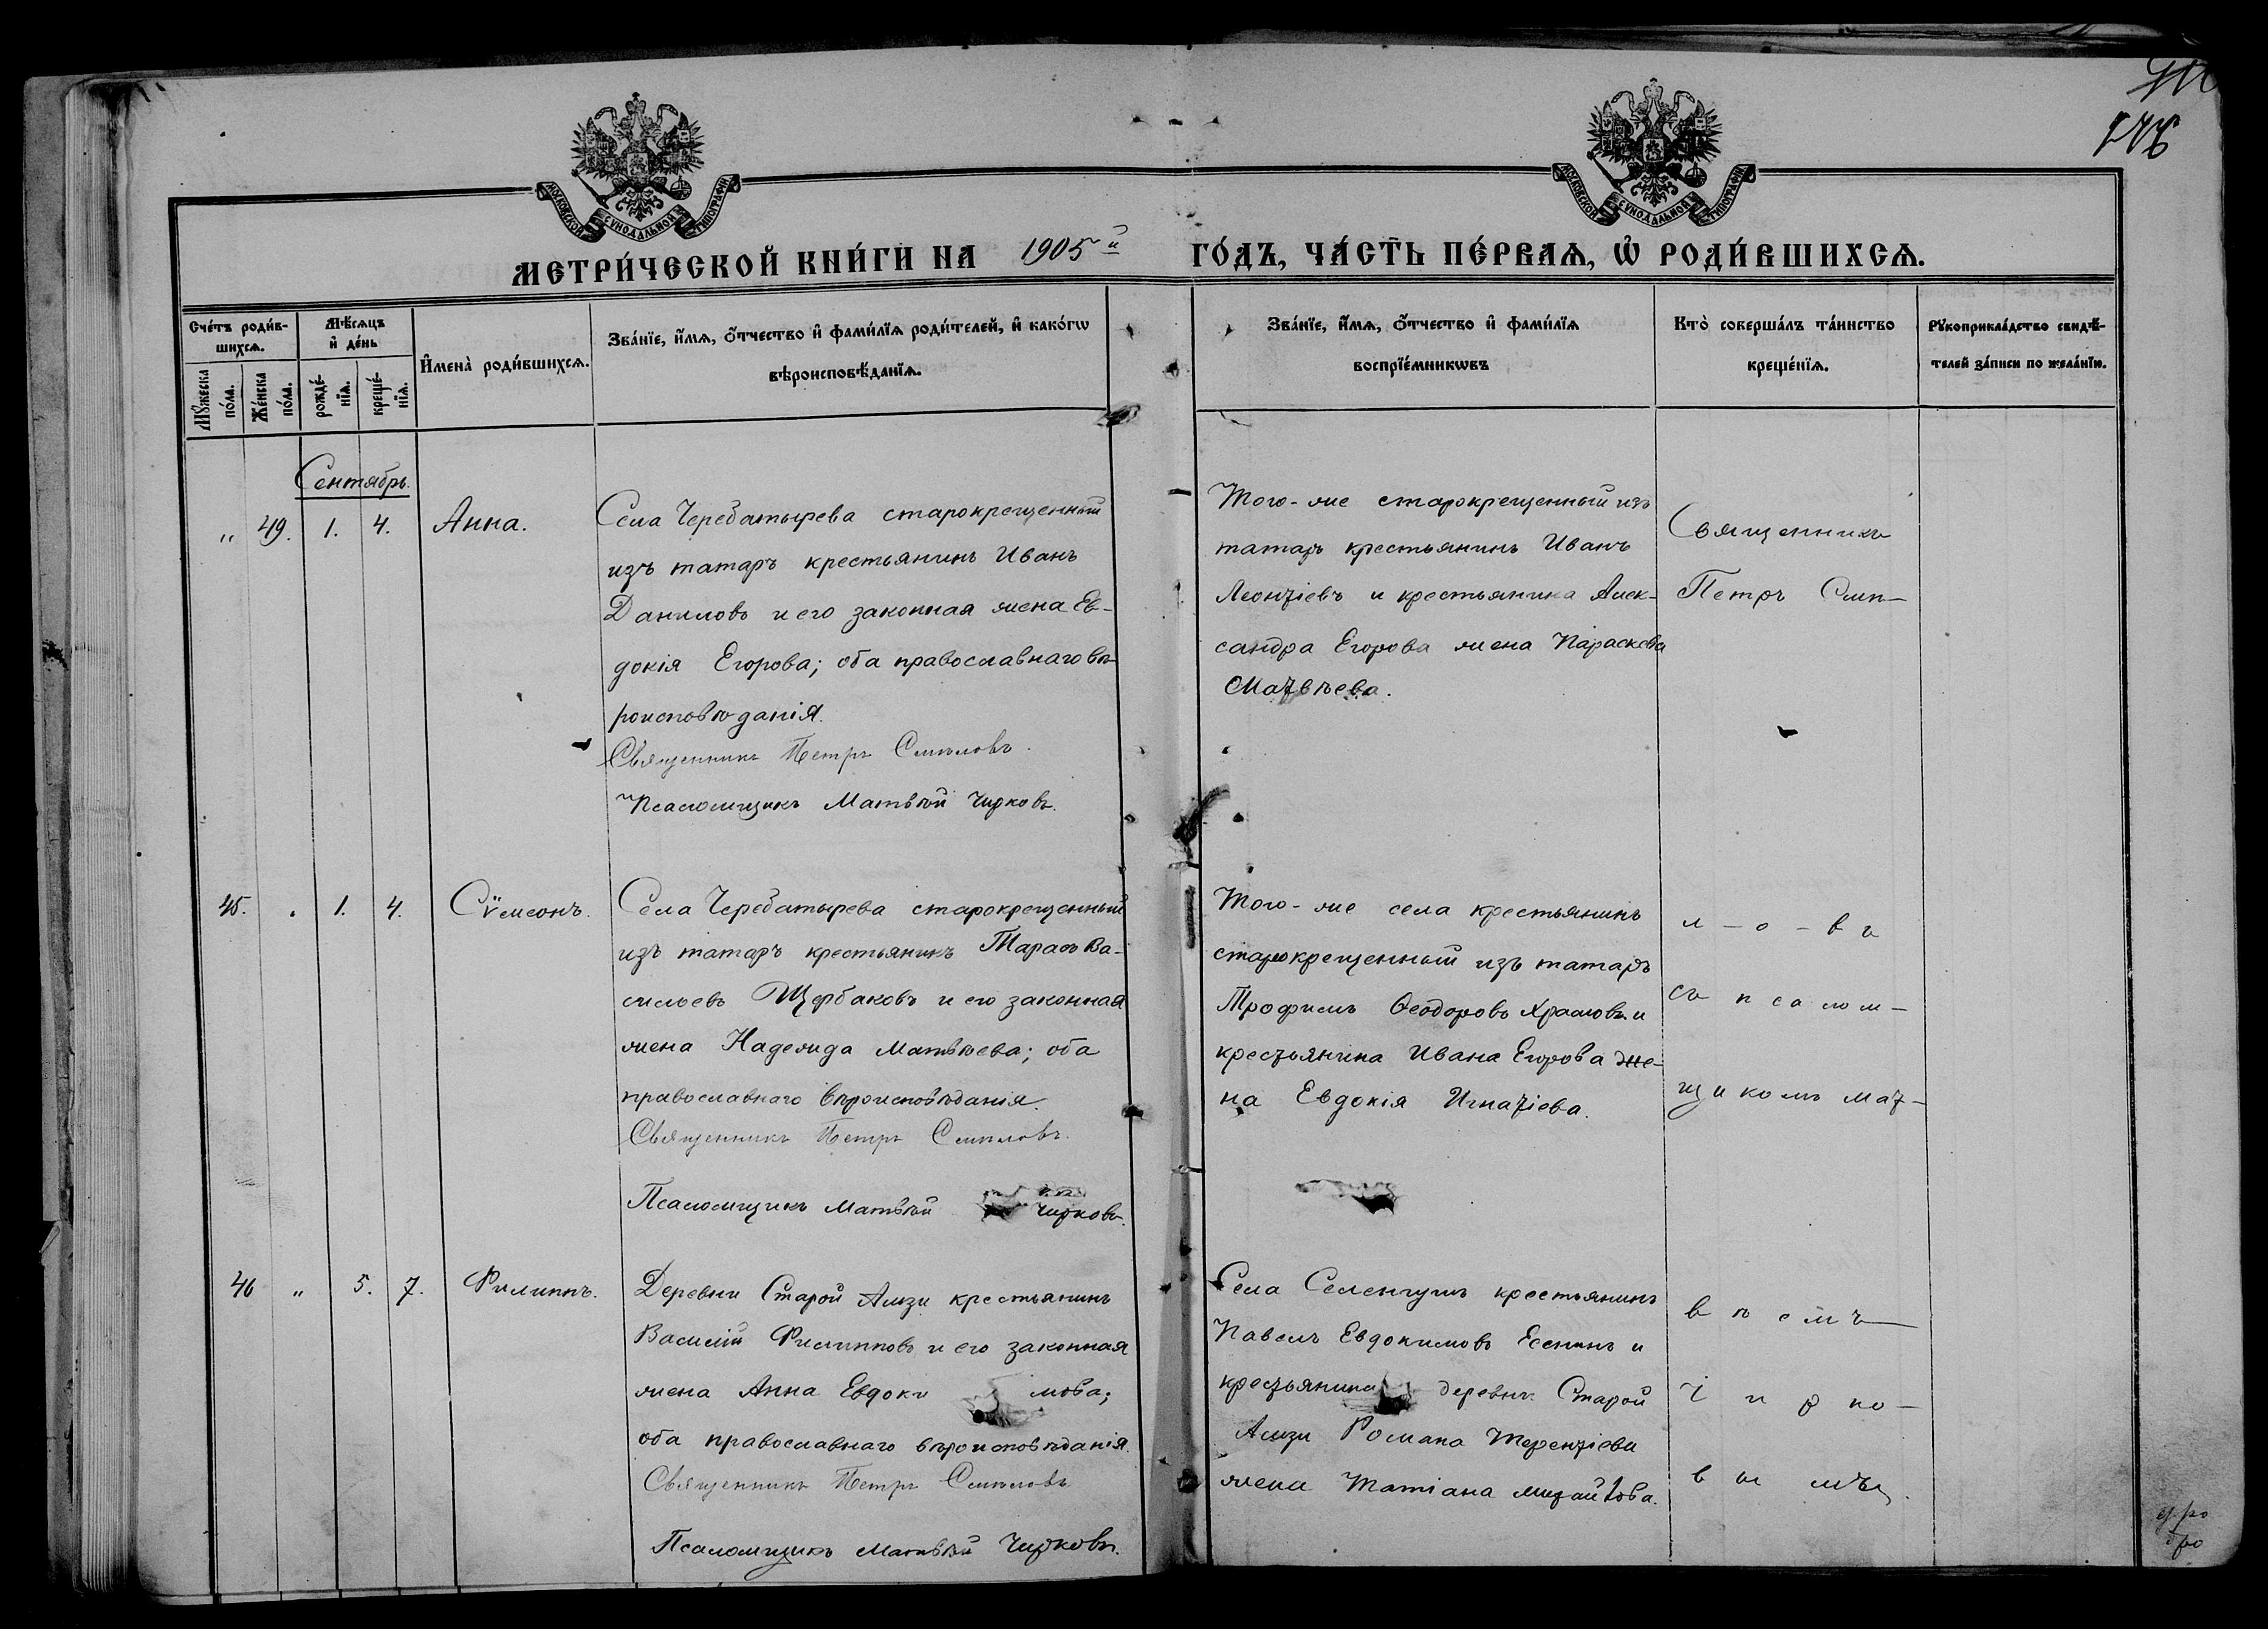 МОСКОВСКОЙ СѴНОДАЛЬНОЙ ТИПОГРАФІИ
МОСКОВСКОЙ СѴНОДАЛЬНОЙ ТИПОГРАФІИ
МЕТРИ́ЧЕСКОЙ КНИ́ГИ НА 1905й ГО́ДЪ, ЧА́СТЬ ПЕ́РВАѦ, Ѡ҆ РОДИ́ВШИХСѦ.
Сче́тъ роди́в-
шихсѧ.
Мѣ́сѧцъ
и҆ де́нь
Мꙋ́жеска
по́ла.
Же́нска
по́ла.
рожде́-
нїѧ.
креще́-
нїѧ.
И҆мена̀ роди́вшихсѧ.
Зва́нїе, и҆́мѧ, ѻ҆́тчество и҆ фами́лїѧ роди́телей, и҆ како́гѡ
вѣроисповѣ́данїѧ.
Зва́нїе, и҆́мѧ, ѻ҆́тчество и҆ фами́лїѧ
воспрїе́мникѡвъ
Кто̀ соверша́лъ та́инство
креще́нїѧ.
Рꙋкоприкла́дство свидѣ́-
телей за́писи по жела́нїю.
Сентябрь.
" 49. 1. 4. Анна.
Села Черебатырева старокрещенный
изъ татаръ крестьянинъ Иванъ
Даниловъ и его законная жена Ев-
докія Егорова; оба православнаго вѣ-
роисповѣданія.
Священникъ Петръ Смѣловъ.
Псаломщикъ Матвѣй Чирковъ.
Того-же старокрещенный изъ
татаръ крестьянинъ Иванъ
Леонтіевъ и крестьянина Алек-
сандра Егорова жена Параскева
Матвѣева.
Священникъ
Петръ Смѣ-
45. . 1. 4. Сѷмеонъ.
Села Черебатырева старокрещенный
изъ татаръ крестьянинъ Тарасъ Ва-
сильевъ Щербаковъ и его законная
жена Надежда Матвѣева; оба
православнаго вѣроисповѣданія.
Священникъ Петръ Смѣловъ.
Псаломщикъ Матвѣй Чирковъ.
Того-же села крестьянинъ
старокрещенный изъ татаръ
Трофимъ Ѳеодоровъ Храмовъ и
крестьянина Ивана Егорова же-
на Евдокія Игнатіева.
л-о-въ
съ псалом-
щикомъ Мат-
46 " 5. 7. Филиппъ.
Деревни Старой Амзи крестьянинъ
Василій Филипповъ и его законная
жена Анна Евдоки мова;
оба православнаго вѣроисповѣданія.
Священникъ Петръ Смѣловъ
Псаломщикъ Матвѣй Чирковъ.
Села Селенгушъ крестьянинъ
Павелъ Евдокимовъ Есенинъ и
крестьянина деревни Старой
Амзи Романа Терентіева
жена Татіана Михайлова.
вѣемъ
Чирко-
вымъ.